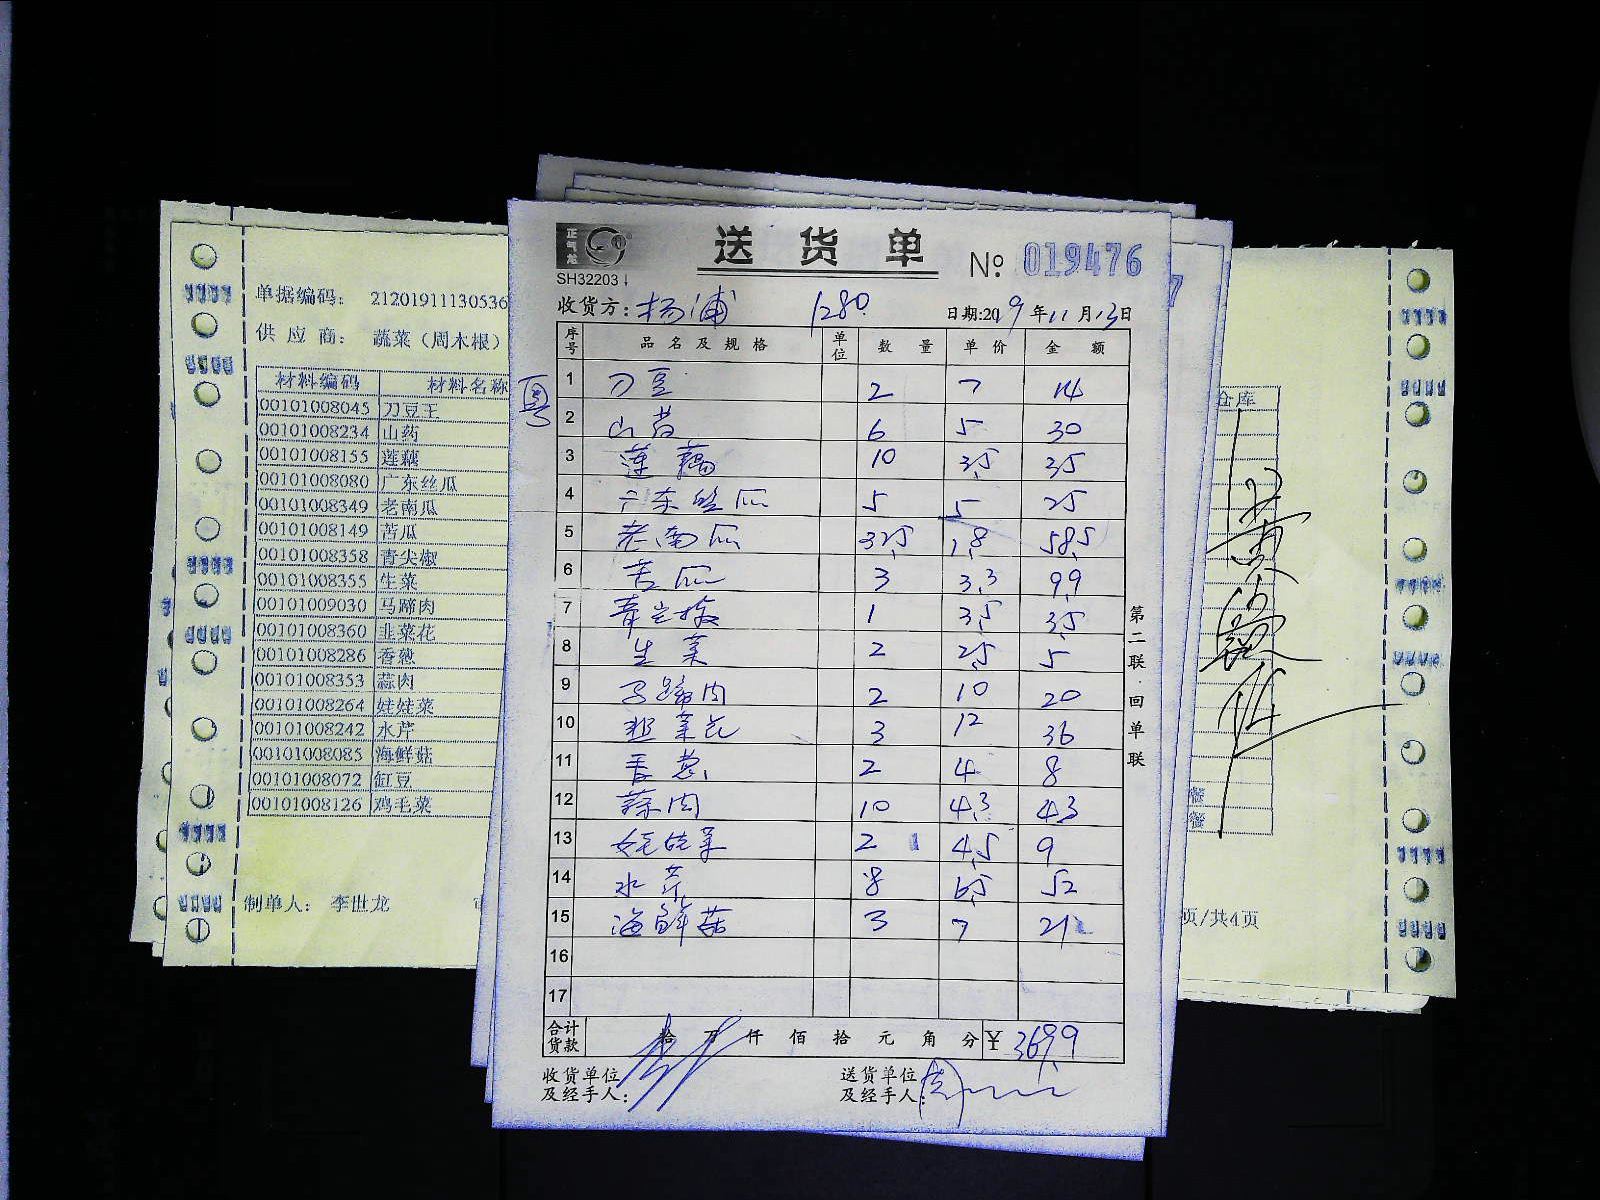 正气龙
送 货 单
№ 019476
SH32203
收货方: 杨浦 1280 日期:2019年11月13日
序号 品名及规格 单位 数量 单价 金额
1 刀豆 2 7 14
2 山药 6 5 30
3 莲藕 10 3.5 35
4 广东丝瓜 5 5 25
5 老南瓜 32.5 1.8 58.5
6 苦瓜 3 3.3 9.9
7 青尖椒 1 3.5 3.5
8 生菜 2 2.5 5
9 马蹄肉 2 10 20
10 韭菜花 3 12 36
11 香葱 2 4 8
12 蒜肉 10 4.3 43
13 娃娃菜 2 4.5 9
14 水芹 8 6.5 52
15 海鲜菇 3 7 21
16
17
合计货款 拾 万 仟 佰 拾 元 角 分 ¥ 369.9
收货单位及经手人:
送货单位及经手人:
第二联·回单联
粤
单据编码: 21201911130536
供 应 商: 蔬菜（周木根）
材料编码 材料名称
00101008045 刀豆王
00101008234 山药
00101008155 莲藕
00101008080 广东丝瓜
00101008349 老南瓜
00101008149 苦瓜
00101008358 青尖椒
00101008355 生菜
00101009030 马蹄肉
00101008360 韭菜花
00101008286 香葱
00101008353 蒜肉
00101008264 娃娃菜
00101008242 水芹
00101008085 海鲜菇
00101008072 缸豆
00101008126 鸡毛菜
制单人: 李世龙
仓库
餐
餐
页/共4页
7